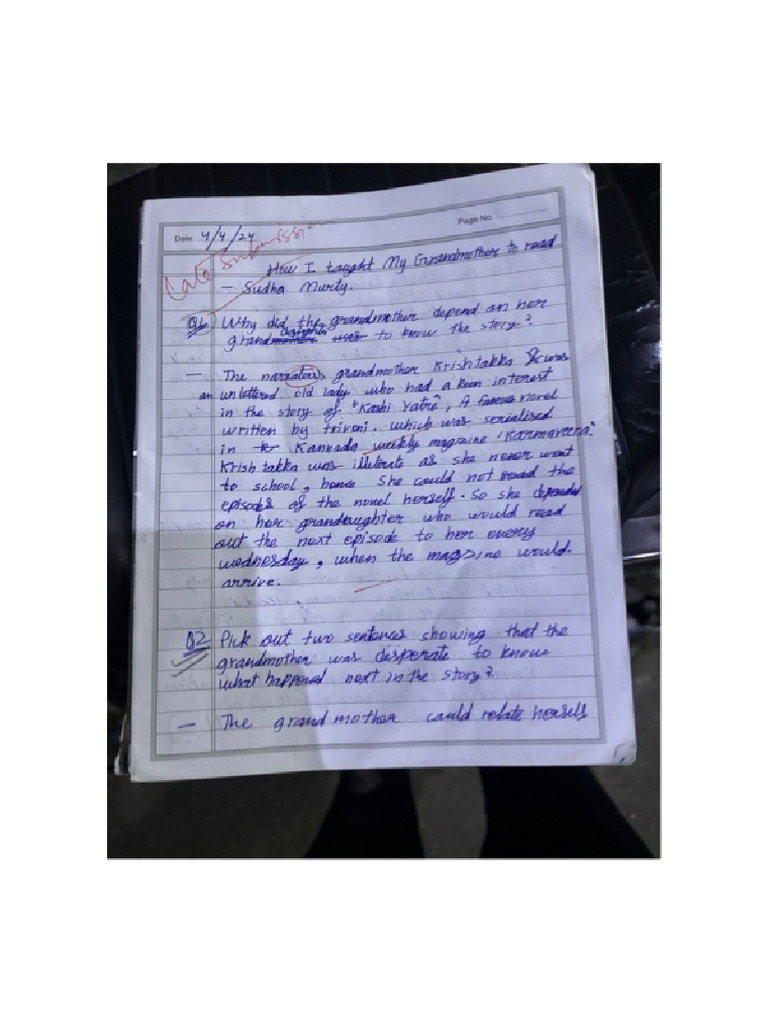 Page No.
Date: 4/4/24
Late Submission
How I taught My Grandmother to read
- Sudha Murty.
Q1 Why did the grandmother depend on her
grand daughter to know the story?
- The narrators grandmother Krishtakka was
an unlettered old lady who had a keen interest
in the story of "Kashi Yatre", A famous novel
written by triveni. which was serialised
in Kannada weekly magazine 'Karmaveera'.
Krishtakka was illeterate as she never went
to school, hence She could not read the
episodes of the novel herself. So she depended
on her grandaughter who would read
out the next episode to her every
wednesday, when the magzine would.
arrive.
Q2 Pick out two sentences showing that the
grandmother was desperate to know
what happened next in the story?
- The grandmother could relate herself